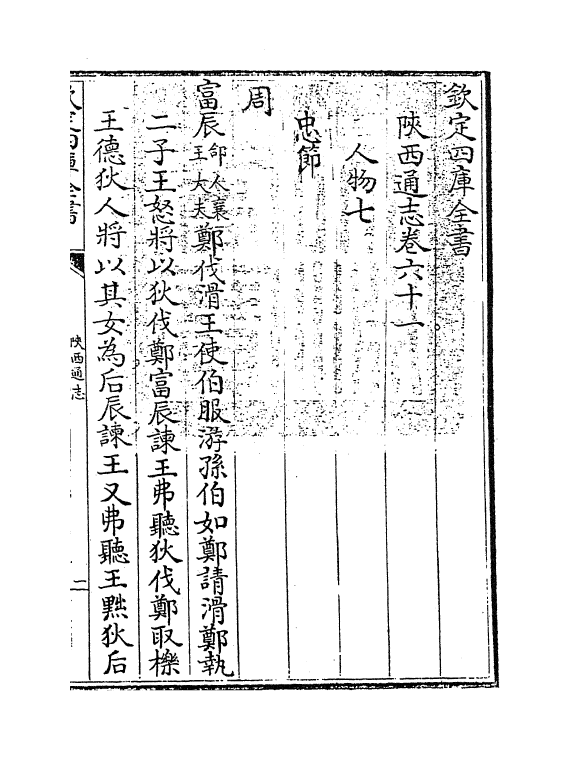 欽定四庫全書
陝西通志卷六十一
人物七
忠節
周
富辰郃人襄王大夫鄭伐滑王使伯服游孫伯如鄭請滑鄭執
二子王怒將以狄伐鄭富辰諫王弗聽狄伐鄭取櫟
王德狄人將以其女為后辰諫王又弗聽王黜狄后
欽定四庫全書
陝西通志